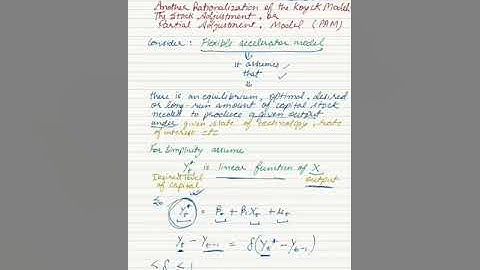 Another Rationalization of the Koyck Model:
The Stock Adjustment, or
Partial Adjustment, Model (PAM)
Consider: Flexible accelerator model
it assumes
that
there is an equilibrium, optimal, desired
or long-run amount of capital stock
needed to produce a given output
under given state of technology, rate
of interest etc
For Simplicity assume
Yt* is linear function of X
Desired level
of capital
output
So
Yt* = β0 + β1Xt + ut
Yt - Yt-1 = δ(Yt* - Yt-1)
≤ δ ≤ 1